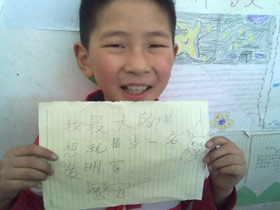 我最大的理
想就是当一名
发明家